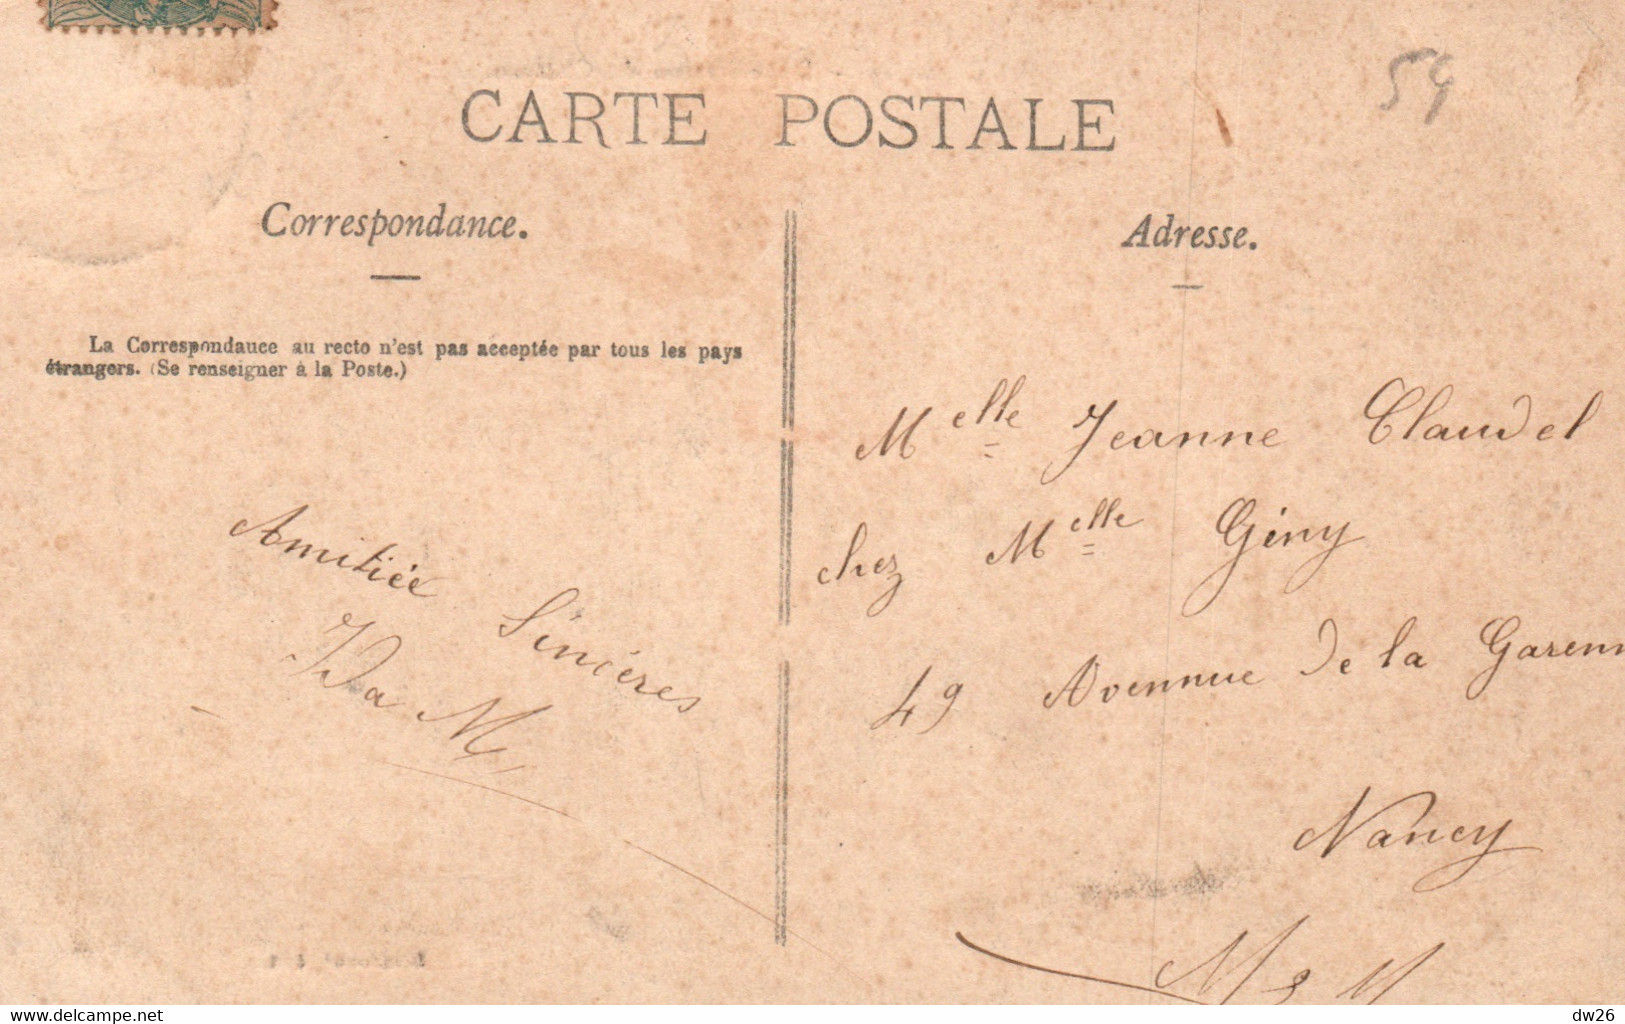 CARTE POSTALE
59
Correspondance.
Adresse.
La Correspondance au recto n'est pas acceptée par tous les pays
étrangers. (Se renseigner à la Poste.)
Amitiée Sincères
Ida M,
Melle Jeanne Claudel
chez Melle Gény
49 Avennue de la Garenn
Nancy
M & M
delcampe.net
dw26